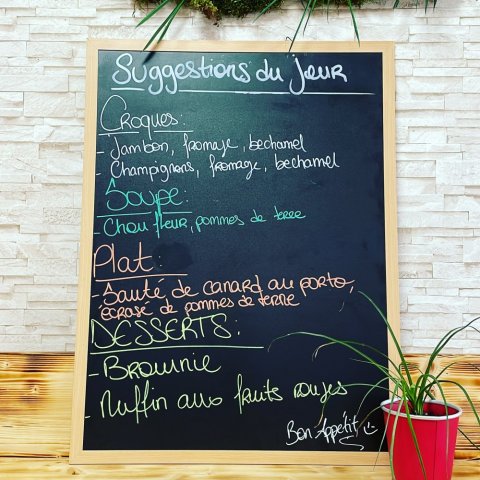 Suggestions du jour
Croques:
- Jambon, fromage, bechamel
- Champignons, fromage, bechamel
Soupe:
- Chou fleur, pommes de terre
Plat:
- Sauté de canard au porto,
écrasé de pommes de terre
DESSERTS:
- Brownie
- Muffin aux fruits rouges
Bon Appétit :)